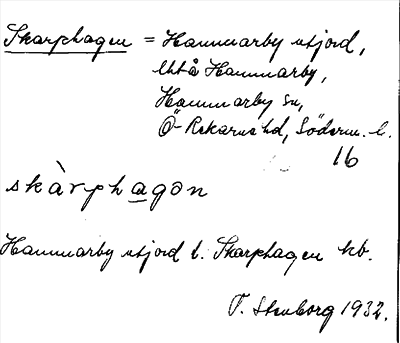 Skarphagen = Hammarby utjord,
Hammarby,
Hammarby sn,
Ö-Rekarne hd, Söderm. l.
16
skàrphagȯn
Hammarby utjord l. Skarphagen kb.
T. Stenborg 1932.